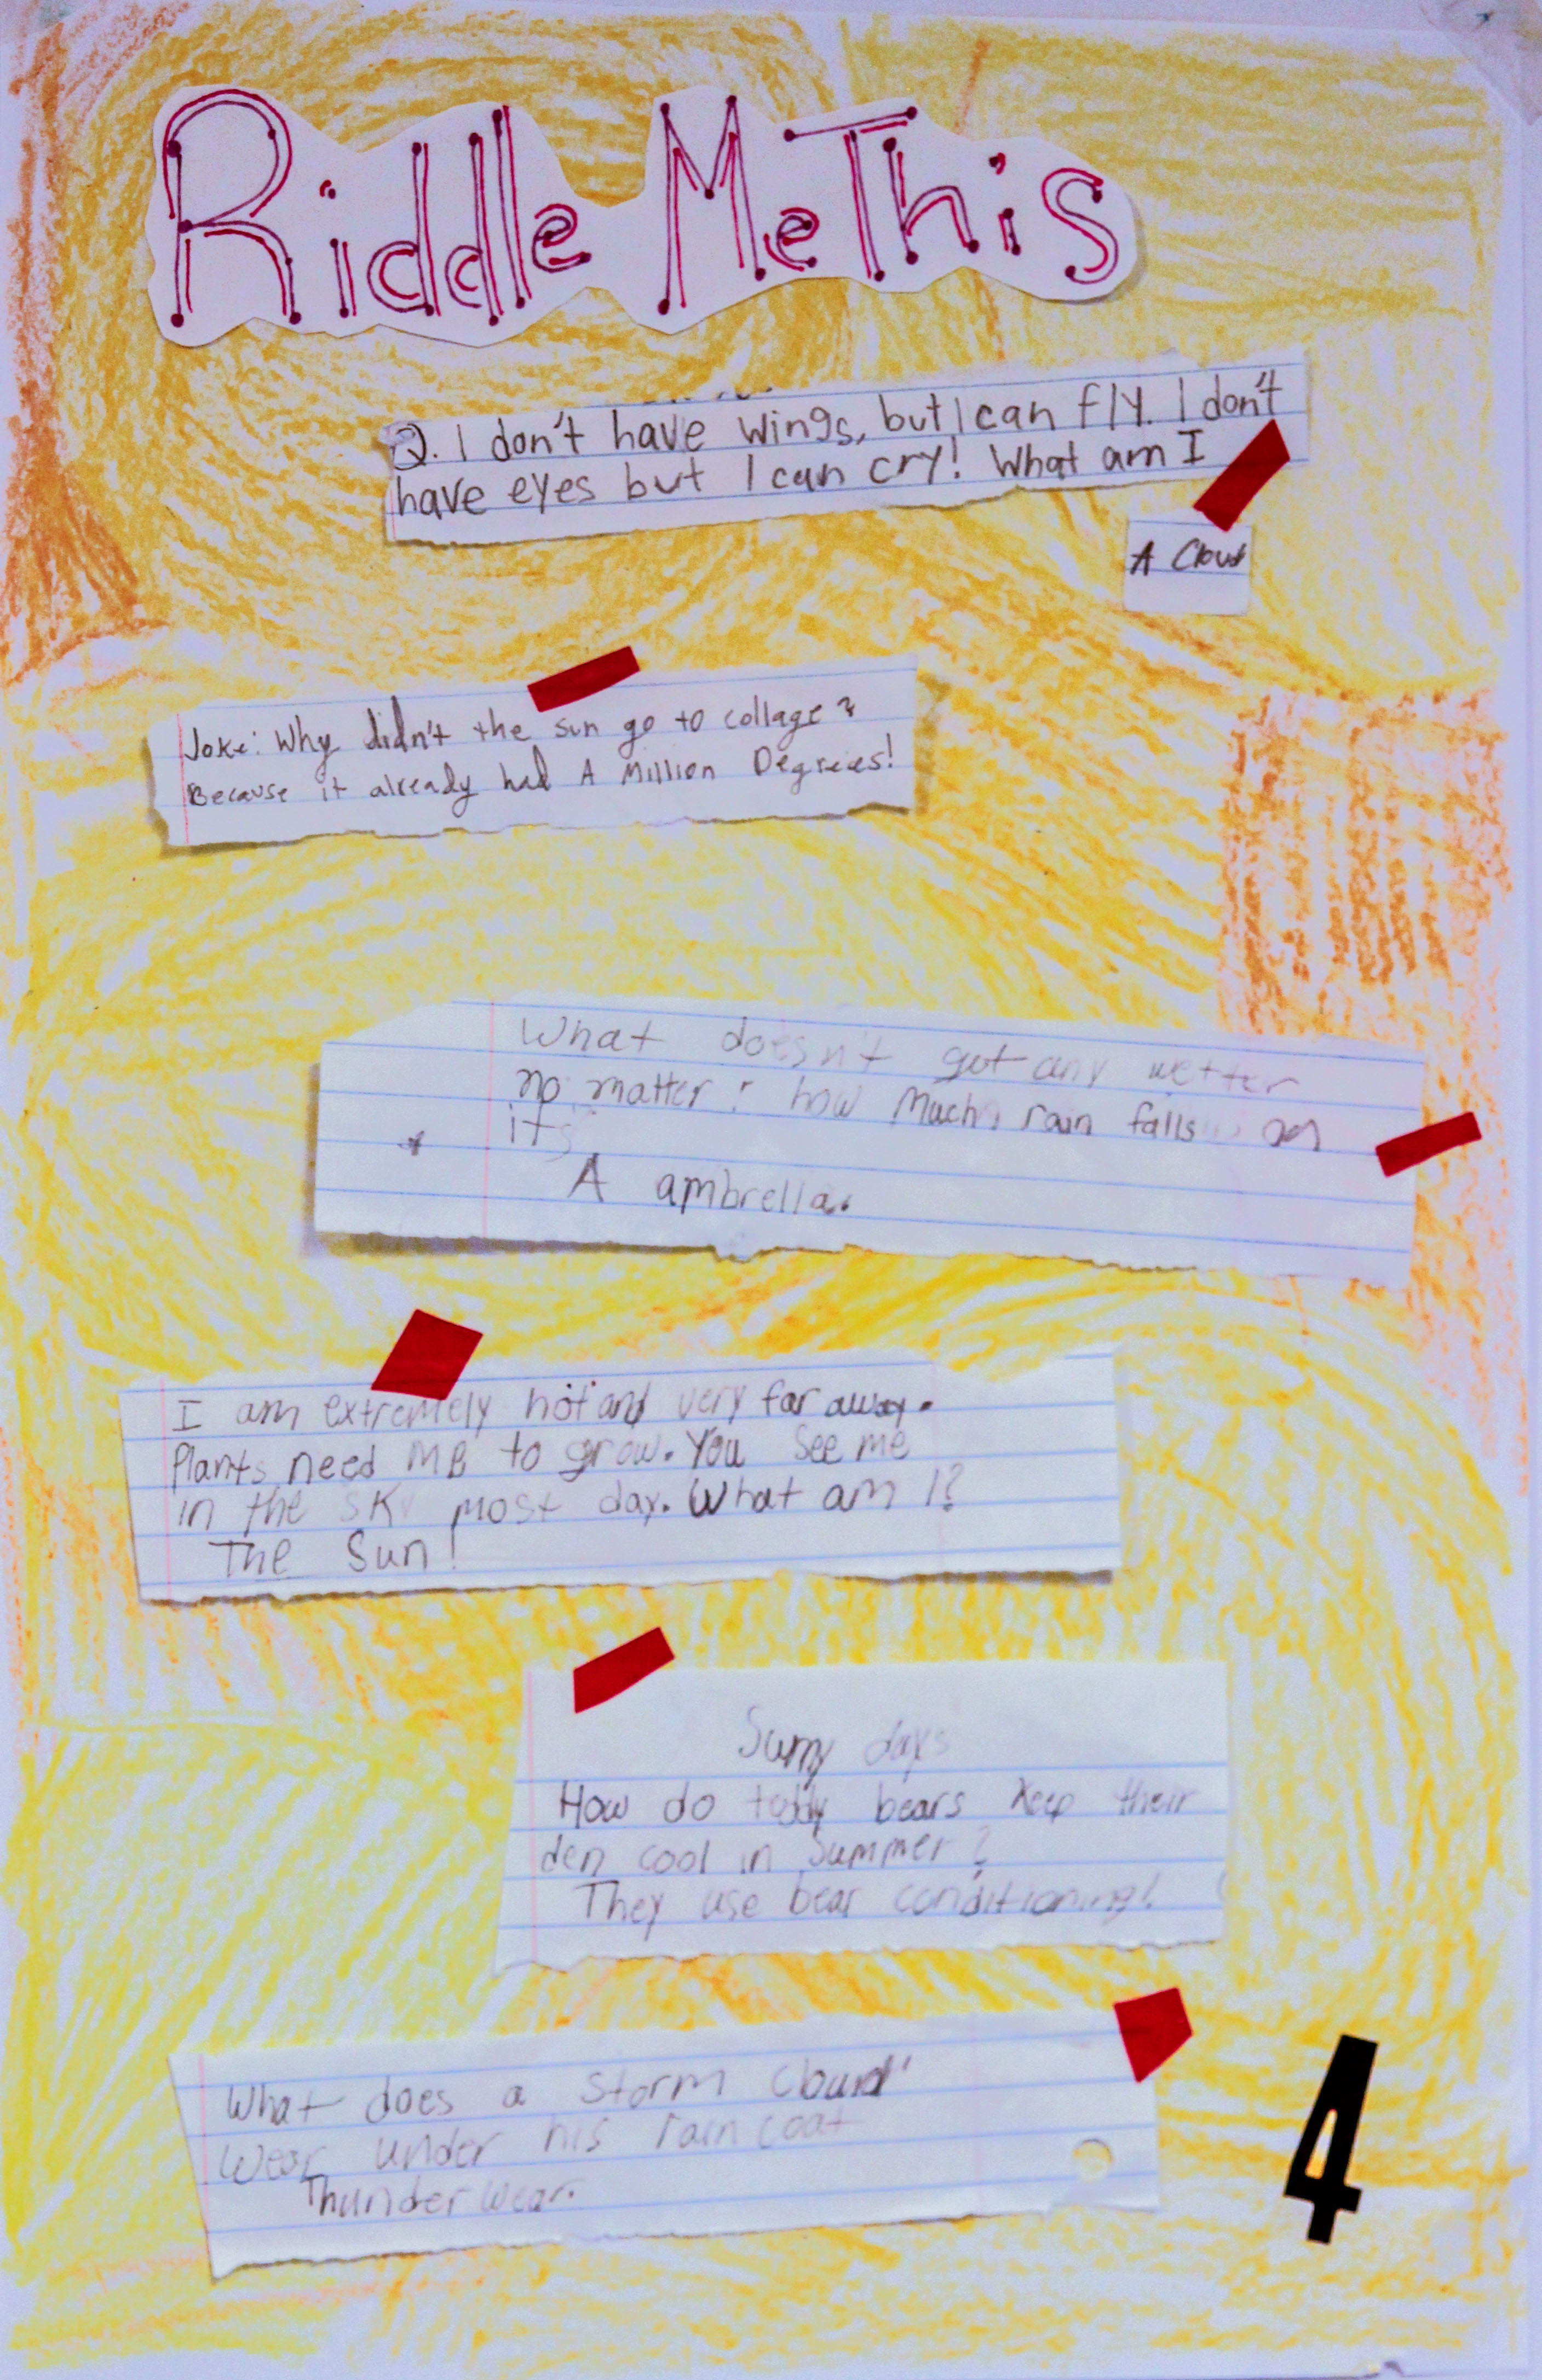 Riddle Me This
Q. I don't have wings, but I can fly. I don't
have eyes but I can cry! What am I
A Cloud
Joke: Why didn't the sun go to collage?
Because it already had A Million Degrees!
What doesn't get any wetter
no matter how much rain falls on
it
A ambrella.
I am extremely hot and very far away.
Plants need me to grow. You see me
in the sky most day. What am I?
The Sun!
Sunny days
How do teddy bears keep their
den cool in Summer?
They use bear conditioning!
What does a storm cloud
wear under his rain coat
Thunder wear.
4